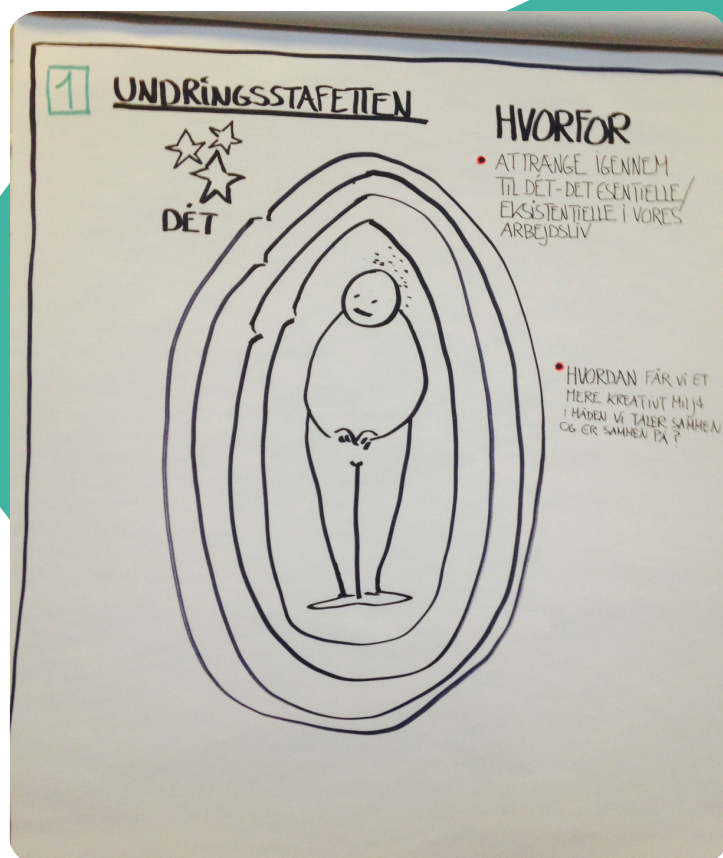 1 UNDRINGSSTAFETTEN
DÉT
HVORFOR
• AT TRÆNGE IGENNEM
TIL DÉT-DET ESENTIELLE/
EKSISTENTIELLE i VORES
ARBEJDSLIV
• HVORDAN FÅR Vi ET
MERE KREATIVT MILJØ
i MÅDEN Vi TALER SAMMEN
OG ER SAMMEN PÅ?